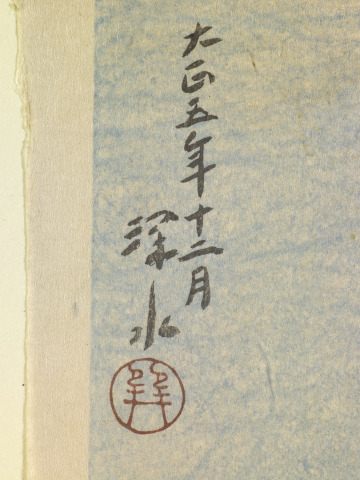 大正五年十二月
深水